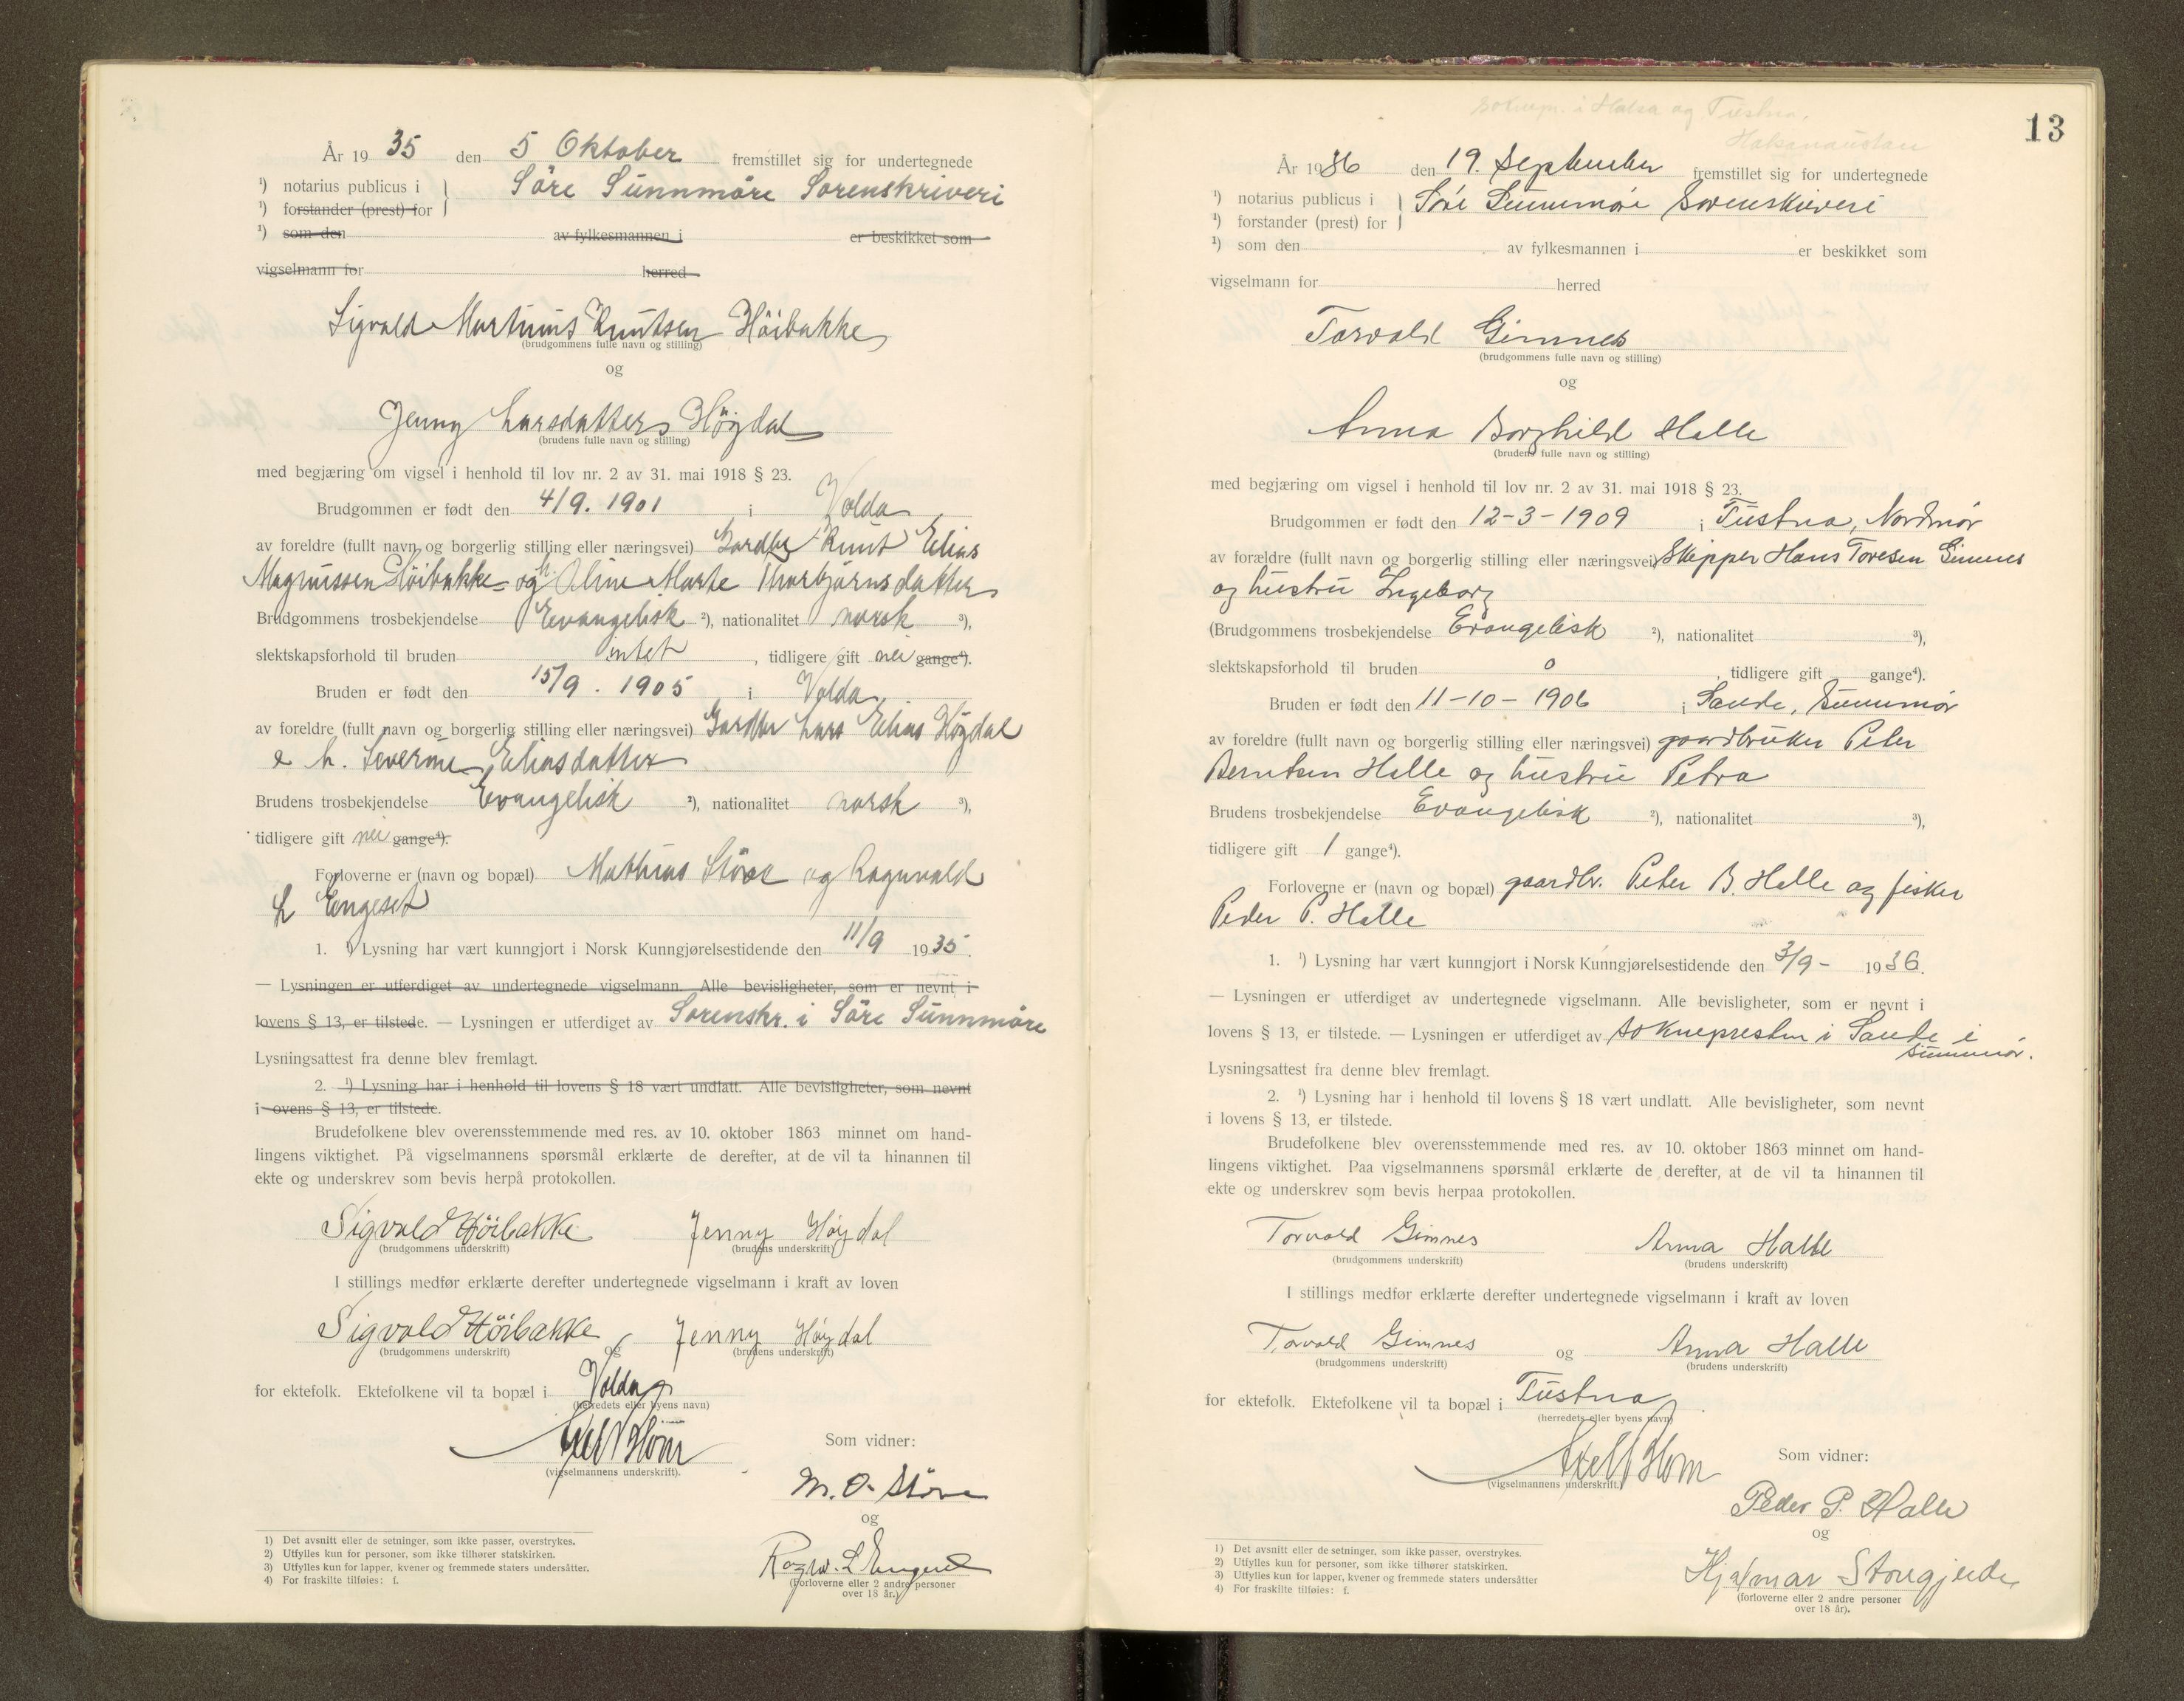 År 1935 den 5 Oktober fremstillet sig for undertegnede
¹) notarius publicus i } Söre Sunnmöre Sorenskriveri
¹) forstander (prest) for
¹) som den av fylkesmannen i er beskikket som
vigselmann for herred
Sigvald Martinus Knutsen Höibakke
(brudgommens fulle navn og stilling)
og
Jenny Larsdatter Höydal
(brudens fulle navn og stilling)
med begjæring om vigsel i henhold til lov nr. 2 av 31. mai 1918 § 23.
Brudgommen er født den 4/9. 1901 i Volda
av foreldre (fullt navn og borgerlig stilling eller næringsvei) Gardbr Knut Elias
Magnussen Höibakke og h. Oline Marte Thorbjörnsdatter
Brudgommens trosbekjendelse Evangelisk ²), nationalitet norsk ³),
slektskapsforhold til bruden intet , tidligere gift nei gange⁴).
Bruden er født den 15/9. 1905 i Volda
av foreldre (fullt navn og borgerlig stilling eller næringsvei) Gardbr Lars Elias Höydal
e h. Severine Eliasdatter
Brudens trosbekjendelse Evangelisk ²), nationalitet norsk ³),
tidligere gift nei gange⁴).
Forloverne er (navn og bopæl) Mathias Störe og Ragnvald
L Engeset
1. ¹) Lysning har vært kunngjort i Norsk Kunngjørelsestidende den 11/9 1935.
— Lysningen er utferdiget av undertegnede vigselmann. Alle bevisligheter, som er nevnt i
lovens § 13, er tilstede. — Lysningen er utferdiget av Sorenskr. i Söre Sunnmöre
Lysningsattest fra denne blev fremlagt.
2. ¹) Lysning har i henhold til lovens § 18 vært undlatt. Alle bevisligheter, som nevnt
i ovens § 13, er tilstede.
Brudefolkene blev overensstemmende med res. av 10. oktober 1863 minnet om hand-
lingens viktighet. På vigselmannens spørsmål erklærte de derefter, at de vil ta hinannen til
ekte og underskrev som bevis herpå protokollen.
Sigvald Höibakke Jenny Höydal
(brudgommens underskrift) (brudens underskrift)
I stillings medfør erklærte derefter undertegnede vigselmann i kraft av loven
Sigvald Höibakke og Jenny Höydal
(brudgommens underskrift) (brudens underskrift)
for ektefolk. Ektefolkene vil ta bopæl i Volda
(herredets eller byens navn)
(vigselmannens underskrift).
Som vidner:
M. O. Störe
og
Ragnv. L Engeset
(forloverne eller 2 andre personer
over 18 år.)
1) Det avsnitt eller de setninger, som ikke passer, overstrykes.
2) Utfylles kun for personer, som ikke tilhører statskirken.
3) Utfylles kun for lapper, kvener og fremmede staters undersåtter.
4) For fraskilte tilføies: f.
soknepr. i Halsa og Tustna,
Halsanaustan
13
År 1936 den 19. September fremstillet sig for undertegnede
¹) notarius publicus i } Söre Sunnmöre Sorenskriveri
¹) forstander (prest) for
¹) som den av fylkesmannen i er beskikket som
vigselmann for herred
Torvald Gimnes
(brudgommens fulle navn og stilling)
og
Anna Borghild Halle
(brudens fulle navn og stilling)
med begjæring om vigsel i henhold til lov nr. 2 av 31. mai 1918 § 23.
Brudgommen er født den 12-3-1909 i Tustna, Nordmör
av forældre (fullt navn og borgerlig stilling eller næringsvei) Skipper Hans Toresen Gimnes
og hustru Ingeborg
(Brudgommens trosbekjendelse Evangelisk ²), nationalitet ³),
slektskapsforhold til bruden 0 , tidligere gift gange⁴).
Bruden er født den 11-10-1906 i Sande, Sunnmör
av foreldre (fullt navn og borgerlig stilling eller næringsvei) gaardbruker Peter
Berntsen Halle og hustru Petra
Brudens trosbekjendelse Evangelisk ²), nationalitet ³),
tidligere gift 1 gange⁴).
Forloverne er (navn og bopæl) gaardbr. Peter B. Halle og fisker
Peder P. Halle
1. ¹) Lysning har vært kunngjort i Norsk Kunngjørelsestidende den 3/9- 1936.
— Lysningen er utferdiget av undertegnede vigselmann. Alle bevisligheter, som er nevnt i
lovens § 13, er tilstede. — Lysningen er utferdiget av soknepresten i Sande i
Sunnmör.
Lysningsattest fra denne blev fremlagt.
2. ¹) Lysning har i henhold til lovens § 18 vært undlatt. Alle bevisligheter, som nevnt
i lovens § 13, er tilstede.
Brudefolkene blev overensstemmende med res. av 10. oktober 1863 minnet om hand-
lingens viktighet. Paa vigselmannens spørsmål erklærte de derefter, at de vil ta hinannen til
ekte og underskrev som bevis herpaa protokollen.
Torvald Gimnes Anna Halle
(brudgommens underskrift) (brudens underskrift)
I stillings medfør erklærte derefter undertegnede vigselmann i kraft av loven
Torvald Gimnes og Anna Halle
(brudgommens underskrift) (brudens underskrift)
for ektefolk. Ektefolkene vil ta bopæl i Tustna
(herredets eller byens navn)
(vigselmannens underskrift.)
Som vidner:
Peder P. Halle
og
Hjalmar Storegjerde
(forloverne eller 2 andre personer
over 18 år).
1) Det avsnitt eller de setninger, som ikke passer, overstrykes.
2) Utfylles kun for personer, som ikke tilhører statskirken.
3) Utfylles kun for lapper, kvener og fremmede staters undersåtter
4) For fraskilte tilføies: f.